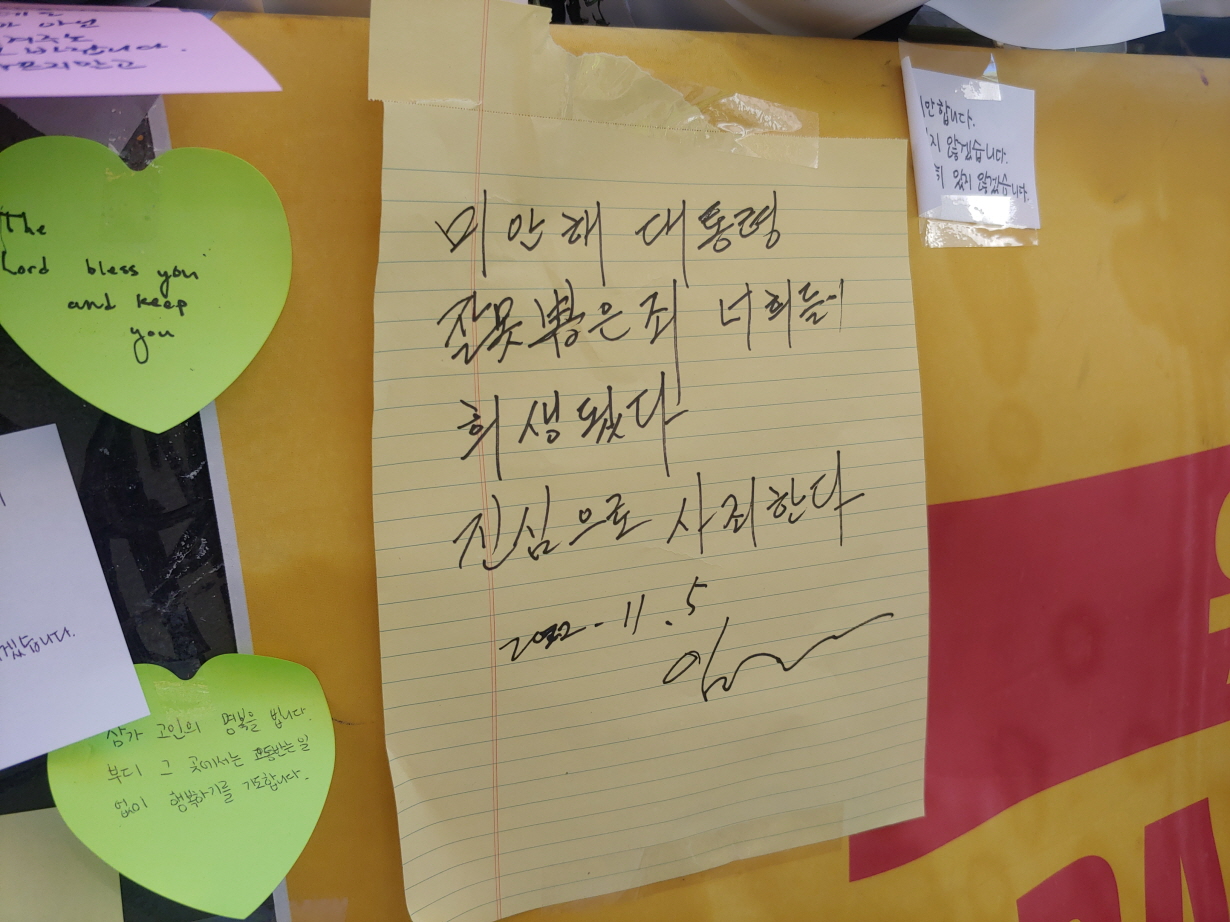 바랍니다.
The
Lord bless you
and keep
you
미안해 대통령
잘못뽑은죄 너희들이
희생됐다
진심으로 사죄한다
2022.11.5
안합니다.
지 않겠습니다.
잊지 않겠습니다.
겠습니다.
삼가 고인의 명복을 빕니다.
부디 그 곳에서는 고통받는일
없이 행복하기를 기도합니다.